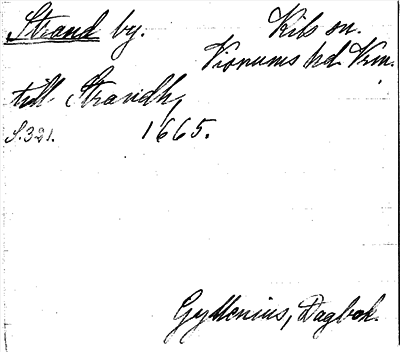 Strand by. Kils sn.
Visnums hd. Vrm.
till Strandh,
S.321. 1665.
Gyllenius, Dagbok.